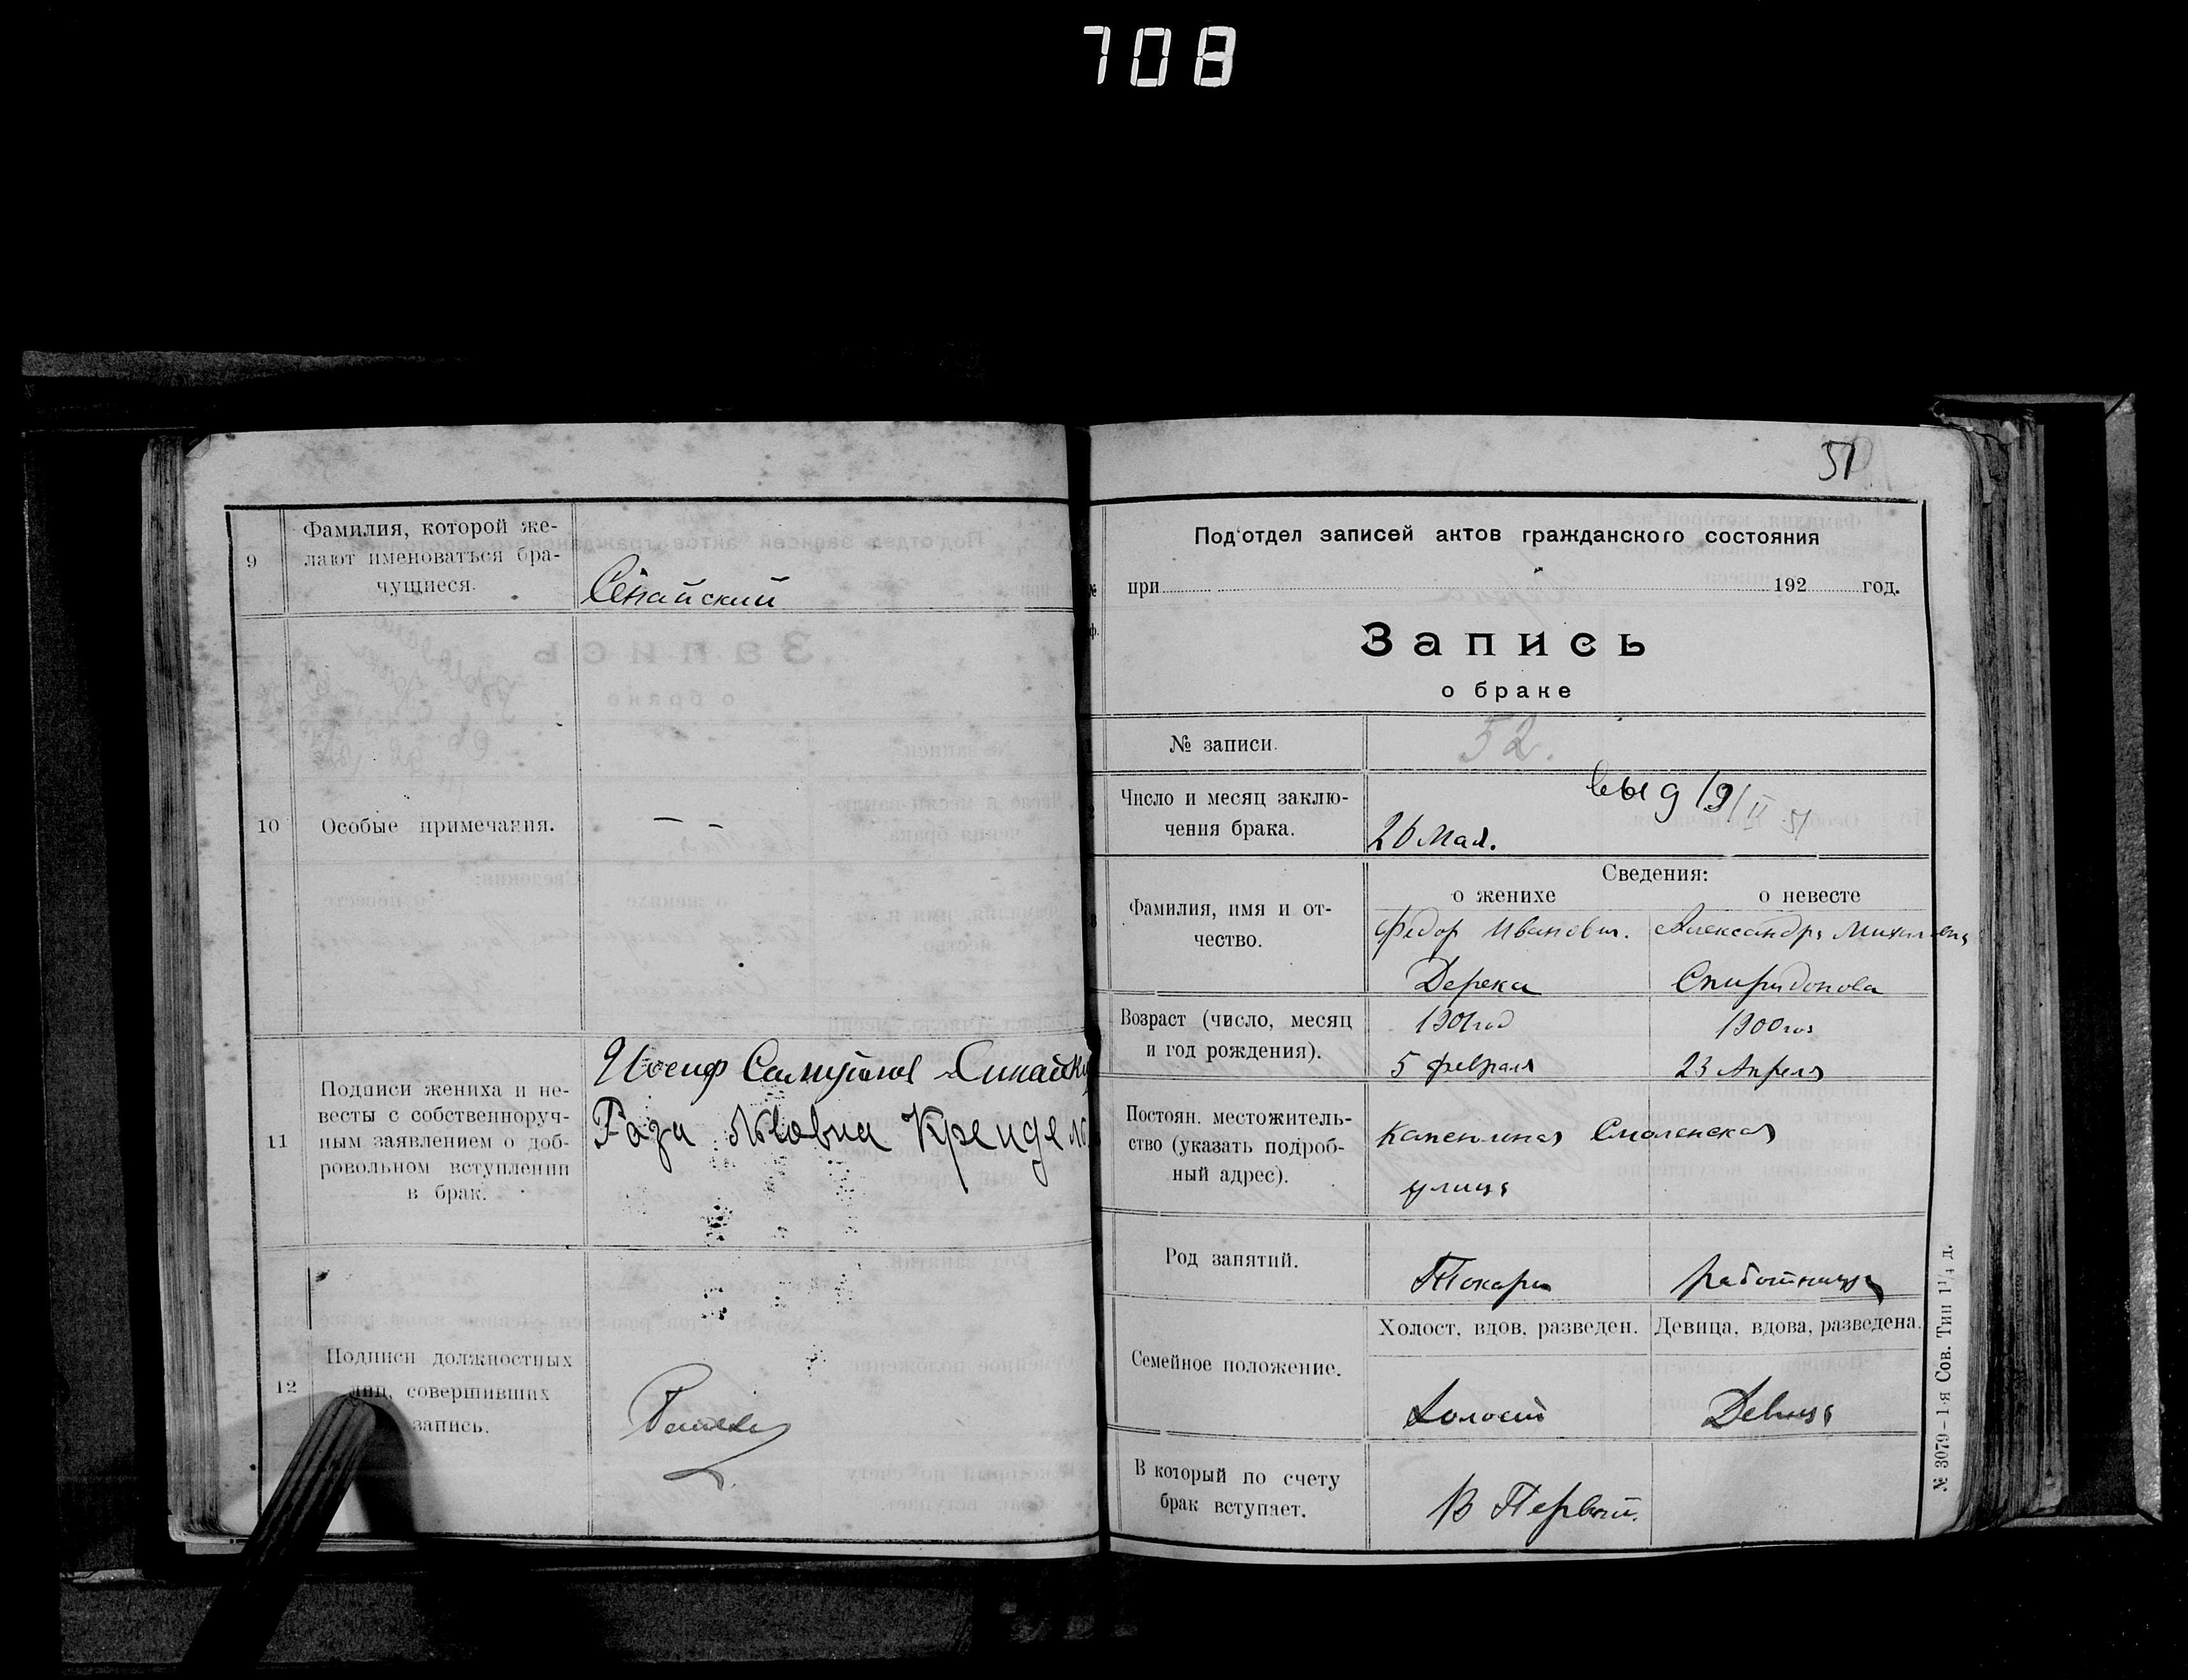 708
9
Фамилия, которой же-
лают именоваться бра-
чущиеся.
Сенайский
10
Особые примечания.
— —
11
Подписи жениха и не-
весты с собственноруч-
ным заявлением о доб-
ровольном вступлении
в брак.
Иосиф Самуилов Синайский
Роза Львовна Крендель
12
Подписи должностных
лиц, совершивших
запись.
51
Под'отдел записей актов гражданского состояния
при 192 год.
Запись
о браке
№ записи.
52.
Число и месяц заклю-
чения брака.
выд 19/II 51
26 Мая.
Сведения:
о женихе о невесте
Фамилия, имя и от-
чество.
Федор Иванович. Александра Михайловна
Дерека Спиридонова
Возраст (число, месяц
и год рождения).
1901 год 1900 год
5 февраля 23 Апреля
Постоян. местожитель-
ство (указать подроб-
ный адрес).
Смоленская
улица
Род занятий.
Токарь работница
Семейное положение.
Холост, вдов, разведен. Девица, вдова, разведена.
Холост Девица
В который по счету
брак вступает.
В Первый.
№ 3079—1-я Сов. Тип 1¹/₄ д.